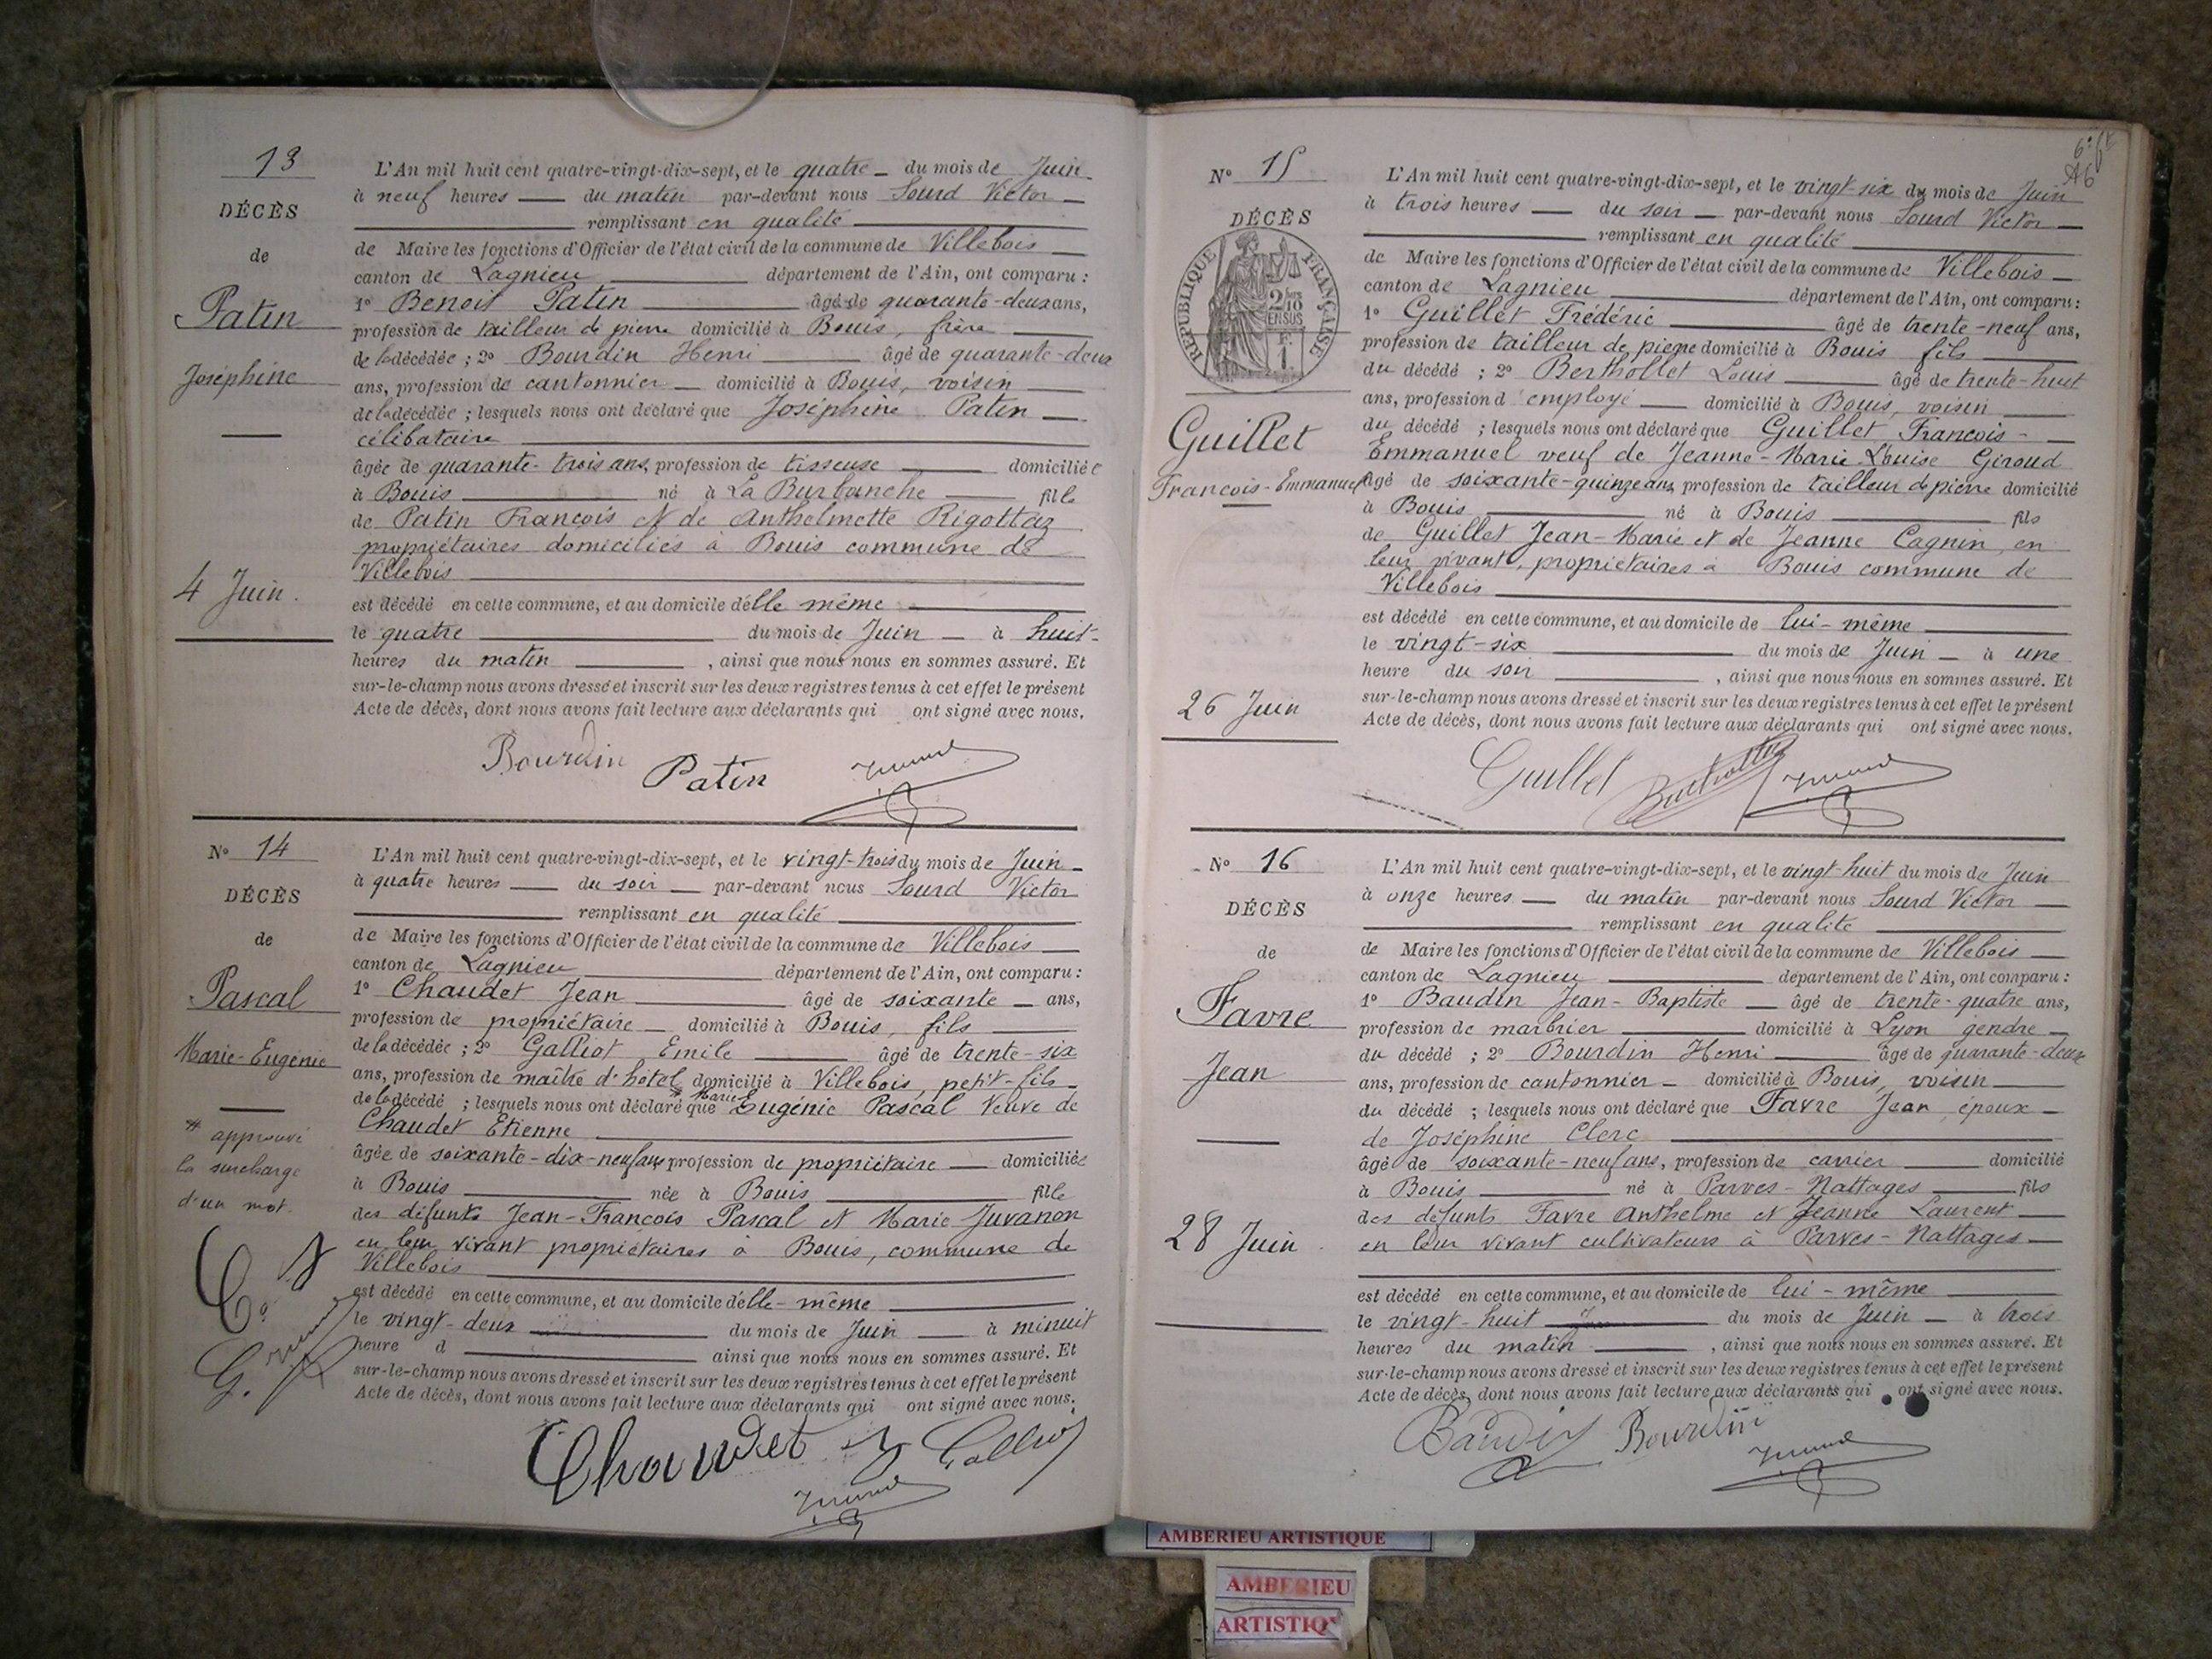 13
DÉCÈS
de
Patin
Joséphine
4 Juin.
L'An mil huit cent quatre-vingt-dix-sept, et le quatre du mois de Juin
à neuf heures du matin par-devant nous Sourd Victor
remplissant en qualité
de Maire les fonctions d'Officier de l'état civil de la commune de Villebois
canton de Lagnieu département de l'Ain, ont comparu :
1º Benoit Patin âgé de quarante-deux ans,
profession de tailleur de pierre domicilié à Bouis, frère
de la décédée ; 2º Bourdin Henri âgé de quarante-deux
ans, profession de cantonnier domicilié à Bouis, voisin
de la décédée ; lesquels nous ont déclaré que Joséphine Patin
célibataire
âgée de quarante-trois ans, profession de tisseuse domiciliée
à Bouis né à La Burbanche fille
de Patin François et de Anthelmette Rigottaz
propriétaires domiciliés à Bouis commune de
Villebois
est décédé en cette commune, et au domicile d'elle même
le quatre du mois de Juin à huit
heures du matin , ainsi que nous nous en sommes assuré. Et
sur-le-champ nous avons dressé et inscrit sur les deux registres tenus à cet effet le présent
Acte de décès, dont nous avons fait lecture aux déclarants qui ont signé avec nous.
Bourdin Patin
Nº 14
DÉCÈS
de
Pascal
Marie-Eugénie
approuvé
la surcharge
d'un mot.
L'An mil huit cent quatre-vingt-dix-sept, et le vingt-trois du mois de Juin
à quatre heures du soir par-devant nous Sourd Victor
remplissant en qualité
de Maire les fonctions d'Officier de l'état civil de la commune de Villebois
canton de Lagnieu département de l'Ain, ont comparu :
1º Chaudet Jean âgé de soixante ans,
profession de propriétaire domicilié à Bouis, fils
de la décédée ; 2º Galliot Emile âgé de trente-six
ans, profession de maître d'hôtel domicilié à Villebois, petit-fils
de la décédé ; lesquels nous ont déclaré que Marie Eugénie Pascal Veuve de
Chaudet Etienne
âgée de soixante-dix-neuf ans profession de propriétaire domiciliée
à Bouis née à Bouis fille
des défunts Jean-François Pascal et Marie Juvanon
en leur vivant propriétaires à Bouis, commune de
Villebois
est décédé en cette commune, et au domicile d'elle-même
le vingt-deux du mois de Juin à minuit
heure d ainsi que nous nous en sommes assuré. Et
sur-le-champ nous avons dressé et inscrit sur les deux registres tenus à cet effet le présent
Acte de décès, dont nous avons fait lecture aux déclarants qui ont signé avec nous.
Chaudet Galliot
Nº 15
DÉCÈS
RÉPUBLIQUE FRANÇAISE
2/10 EN SUS
Guillet
François-Emmanuel
26 Juin
L'An mil huit cent quatre-vingt-dix-sept, et le vingt-six du mois de Juin
à trois heures du soir par-devant nous Sourd Victor
remplissant en qualité
de Maire les fonctions d'Officier de l'état civil de la commune de Villebois
canton de Lagnieu département de l'Ain, ont comparu :
1º Guillet Frédéric âgé de trente-neuf ans,
profession de tailleur de pierre domicilié à Bouis fils
du décédé ; 2º Berthollet Louis âgé de trente-huit
ans, profession d employé domicilié à Bouis, voisin
du décédé ; lesquels nous ont déclaré que Guillet François-
Emmanuel veuf de Jeanne-Marie-Louise Giroud
âgé de soixante-quinze ans, profession de tailleur de pierre domicilié
à Bouis né à Bouis fils
de Guillet Jean-Marie et de Jeanne Cagnin, en
leur vivant, propriétaires à Bouis commune de
Villebois
est décédé en cette commune, et au domicile de lui-même
le vingt-six du mois de Juin à une
heure du soir , ainsi que nous nous en sommes assuré. Et
sur-le-champ nous avons dressé et inscrit sur les deux registres tenus à cet effet le présent
Acte de décès, dont nous avons fait lecture aux déclarants qui ont signé avec nous.
Guillet Berthollet
Nº 16
DÉCÈS
de
Favre
Jean
28 Juin
L'An mil huit cent quatre-vingt-dix-sept, et le vingt-huit du mois de Juin
à onze heures du matin par-devant nous Sourd Victor
remplissant en qualité
de Maire les fonctions d'Officier de l'état civil de la commune de Villebois
canton de Lagnieu département de l'Ain, ont comparu :
1º Baudin Jean-Baptiste âgé de trente-quatre ans,
profession de marbrier domicilié à Lyon gendre
du décédé ; 2º Bourdin Henri âgé de quarante-deux
ans, profession de cantonnier domicilié à Bouis, voisin
du décédé ; lesquels nous ont déclaré que Favre Jean, époux
de Joséphine Clerc
âgé de soixante-neuf ans, profession de carrier domicilié
à Bouis né à Parves-Nattages fils
des défunts Favre Anthelme et Jeanne Laurent
en leur vivant cultivateurs à Parves-Nattages
est décédé en cette commune, et au domicile de lui-même
le vingt-huit du mois de Juin à trois
heures du matin , ainsi que nous nous en sommes assuré. Et
sur-le-champ nous avons dressé et inscrit sur les deux registres tenus à cet effet le présent
Acte de décès, dont nous avons fait lecture aux déclarants qui ont signé avec nous.
Baudin Bourdin
AMBERIEU ARTISTIQUE
AMBERIEU
ARTISTIQ